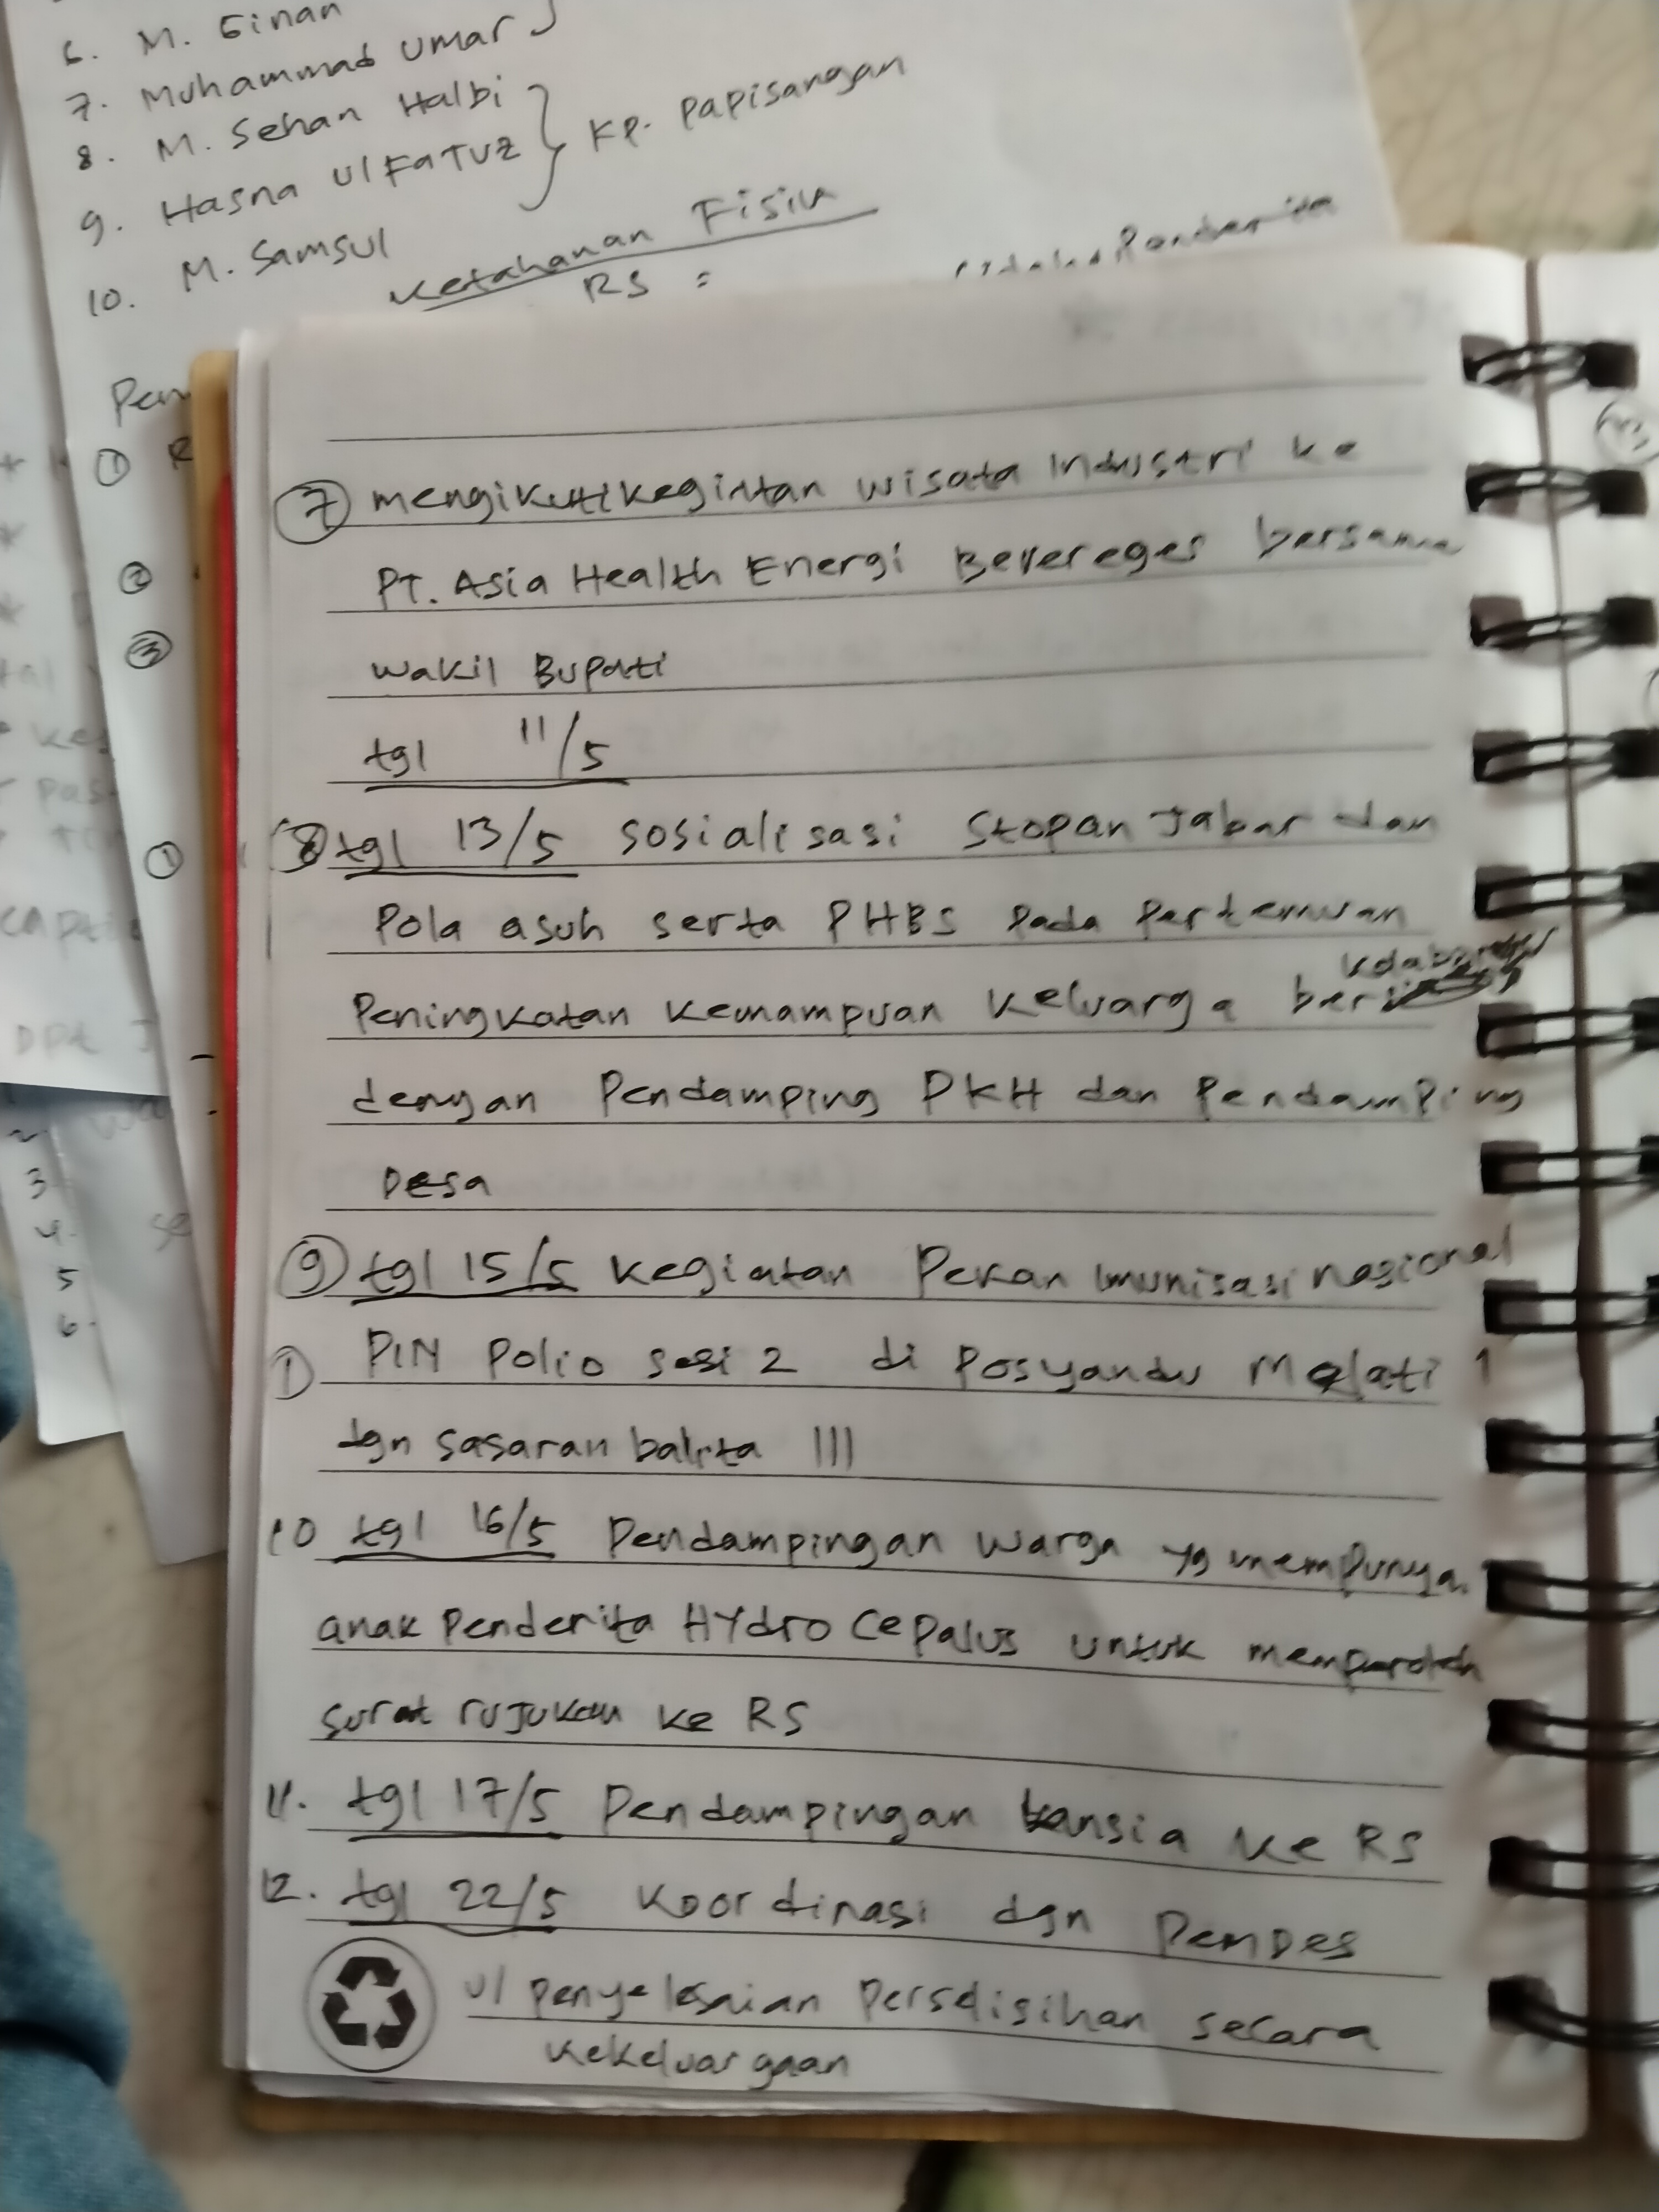 6. M. Ginan
7. Muhammad Umar
8. M. Sehan Halbi
9. Hasna UlFaTUZ
Kp. Papisangan
10. M. Samsul
Ketahanan Fisik
RS :
Pen
①
②
③
①
⑦ mengikuti kegiatan wisata Industri ke
PT. Asia Health Energi Bevereges bersama
Wakil Bupati
tgl 11/5
⑧ tgl 13/5 Sosialisasi Stopan Jabar dan
Pola asuh serta PHBS Pada Pertemuan
Peningkatan Kemampuan Keluarga
dengan Pendamping PKH dan Pendamping
Desa
⑨ tgl 15/5 Kegiatan Pekan Imunisasi nasional
① PIN Polio sesi 2 di Posyandu Melati 1
dgn sasaran balita 111
10 tgl 16/5 Pendampingan warga yg mempunyai
anak Penderita HYdro Cepalus untuk memperoleh
surat rujukan ke RS
11. tgl 17/5 Pendampingan ke RS
12. tgl 22/5 Koordinasi dgn PemDes
u/ penyelesaian Perselisihan secara
kekeluargaan
3
4.
5
6.